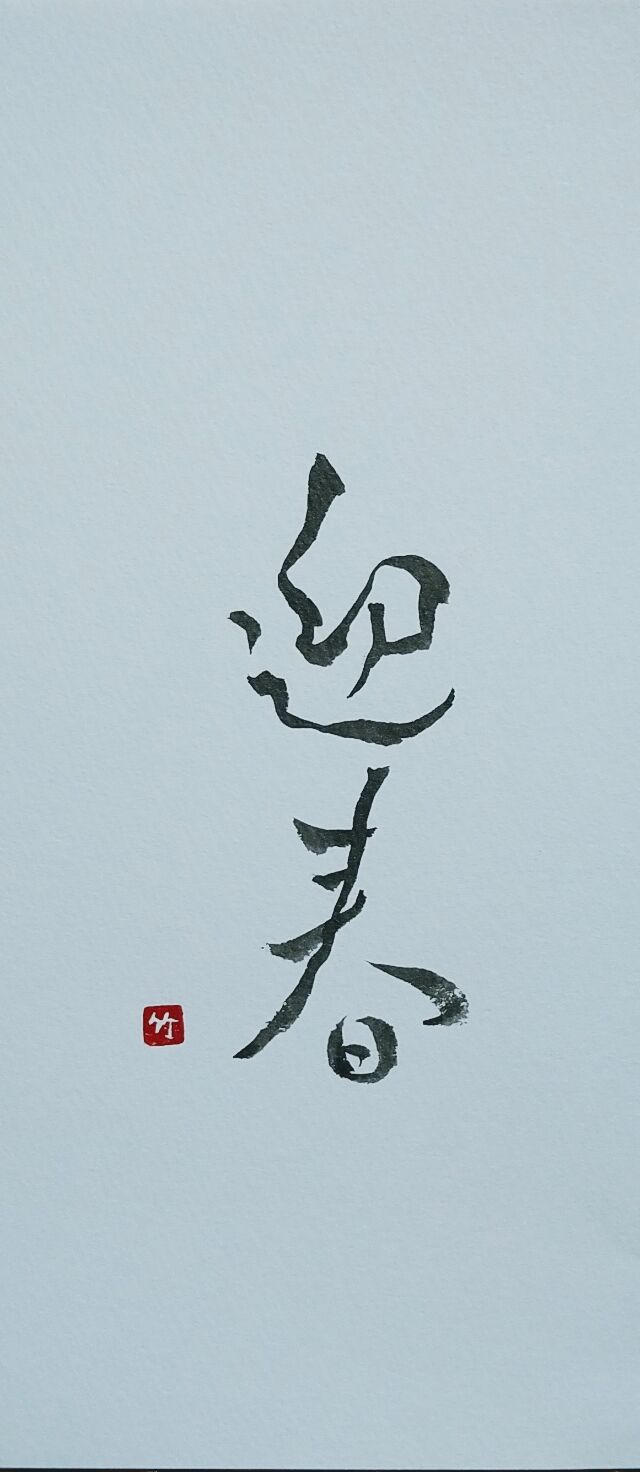 迎春
竹